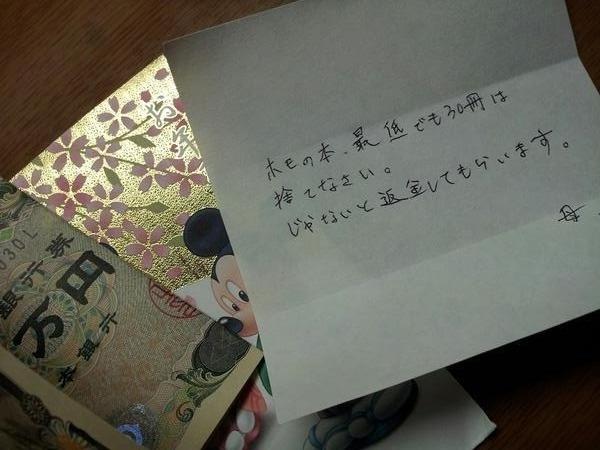 ホモの本、最低でも30冊は
捨てなさい。
じゃないと返金してもらいます。
母
お年
030L
銀行券
万円